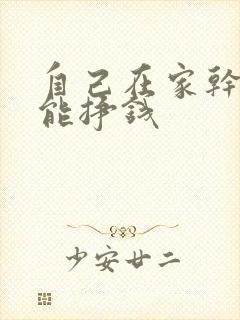 自己在家幹
能掙錢
少安廿二